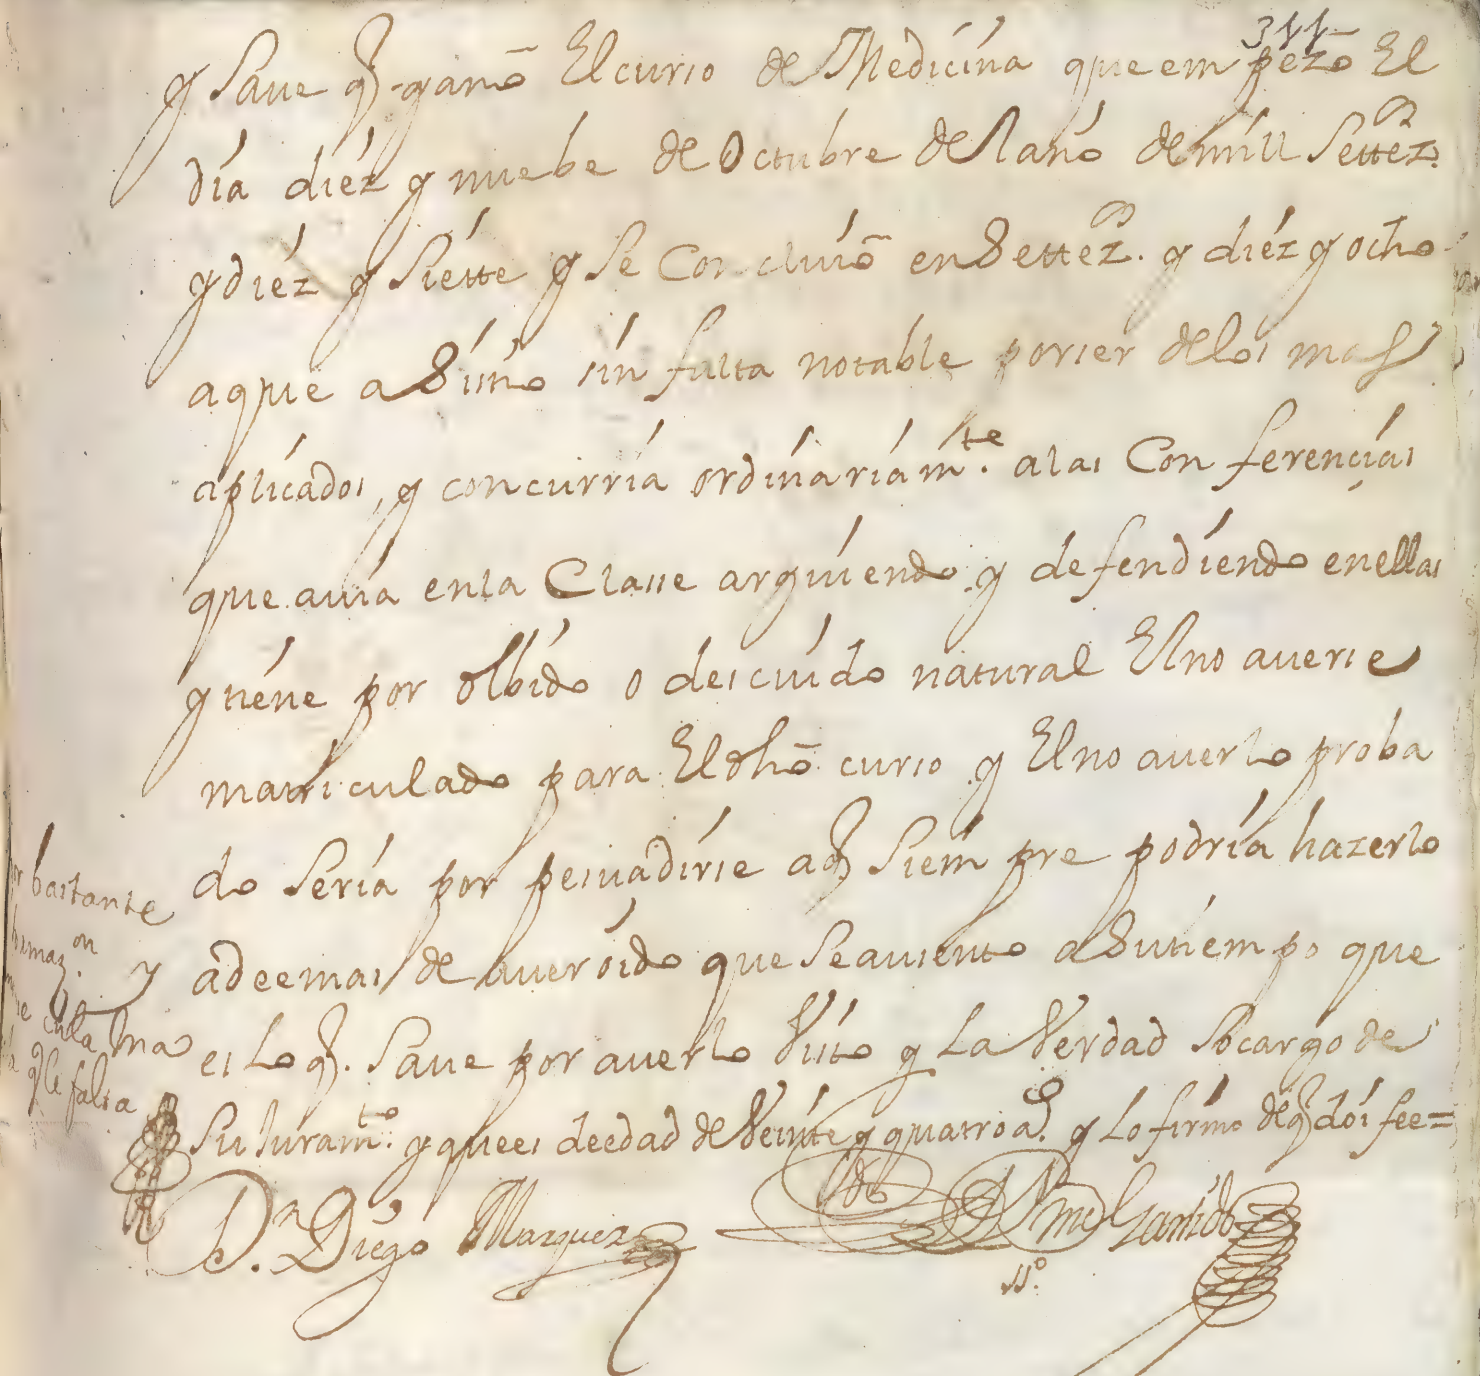 344
y Save q̃ gano El curso de Medicina que empezo El
dia diez y nuebe de Octubre del ano de mill Settez.
y diez y Siette y Se Concluio en Settez. y diez y ocho
a que asistio sin falta notable por ser de los mas
aplicados, y concurria ordinariam.te a las Conferencias
que auia en la Classe arguiendo y defendiendo en ellas
y tiene por olbido o descuido natural El no auerse
matriculado para El dho curso y El no auerlo proba
do Seria por persuadirse a q̃ Siempre podria hazerlo
ademas de auer oido que Se ausento a Su tiempo que
es Lo q̃. Saue por auerlo Visto y La Verdad So cargo de
Su Juram.to y que es de edad de Veinte y quatro a.s y Lo firmo de q̃ doi fee=
bastante
on
y
en la ma
q̃ le falta
D.n Diego Marquez
Garrido
SS.o